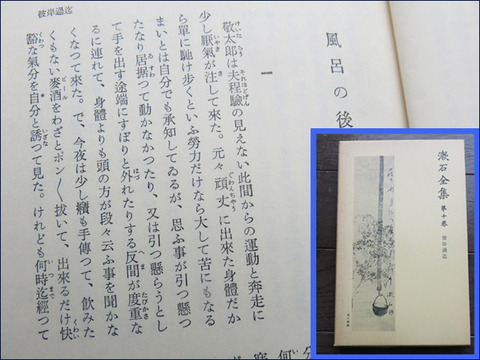 彼岸過迄
風呂の後
一
敬太郎は夫程驗の見えない此間からの運動と奔走に
少し厭氣が注して來た。元々頑丈に出來た身體だか
ら單に馳け歩くといふ勞力だけなら大して苦にもなる
まいとは自分でも承知してゐるが、思ふ事が引つ懸つ
たなり居据つて動かなかつたり、又は引つ懸らうとし
て手を出す途端にすぽりと外れたりする反間が度重な
るに連れて、身體よりも頭の方が段々云ふ事を聞かな
くなつて來た。で、今夜は少し癪も手傳つて、飲みた
くもない麥酒をわざとポン〳〵拔いて、出來るだけ快
豁な氣分を自分と誘つて見た。けれども何時迄經つて
漱石全集
第十卷
彼岸過迄